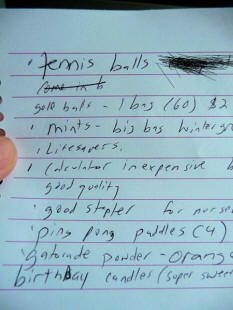 · tennis balls
come in b
golf balls - 1 bag (60) $2
· mints - big bag wintergr
· Lifesavers.
· Calculator inexpensive b
good quality
· good stapler for nurse
· ping pong paddles (4)
· gatorade powder - orang
birthday candles (super swee